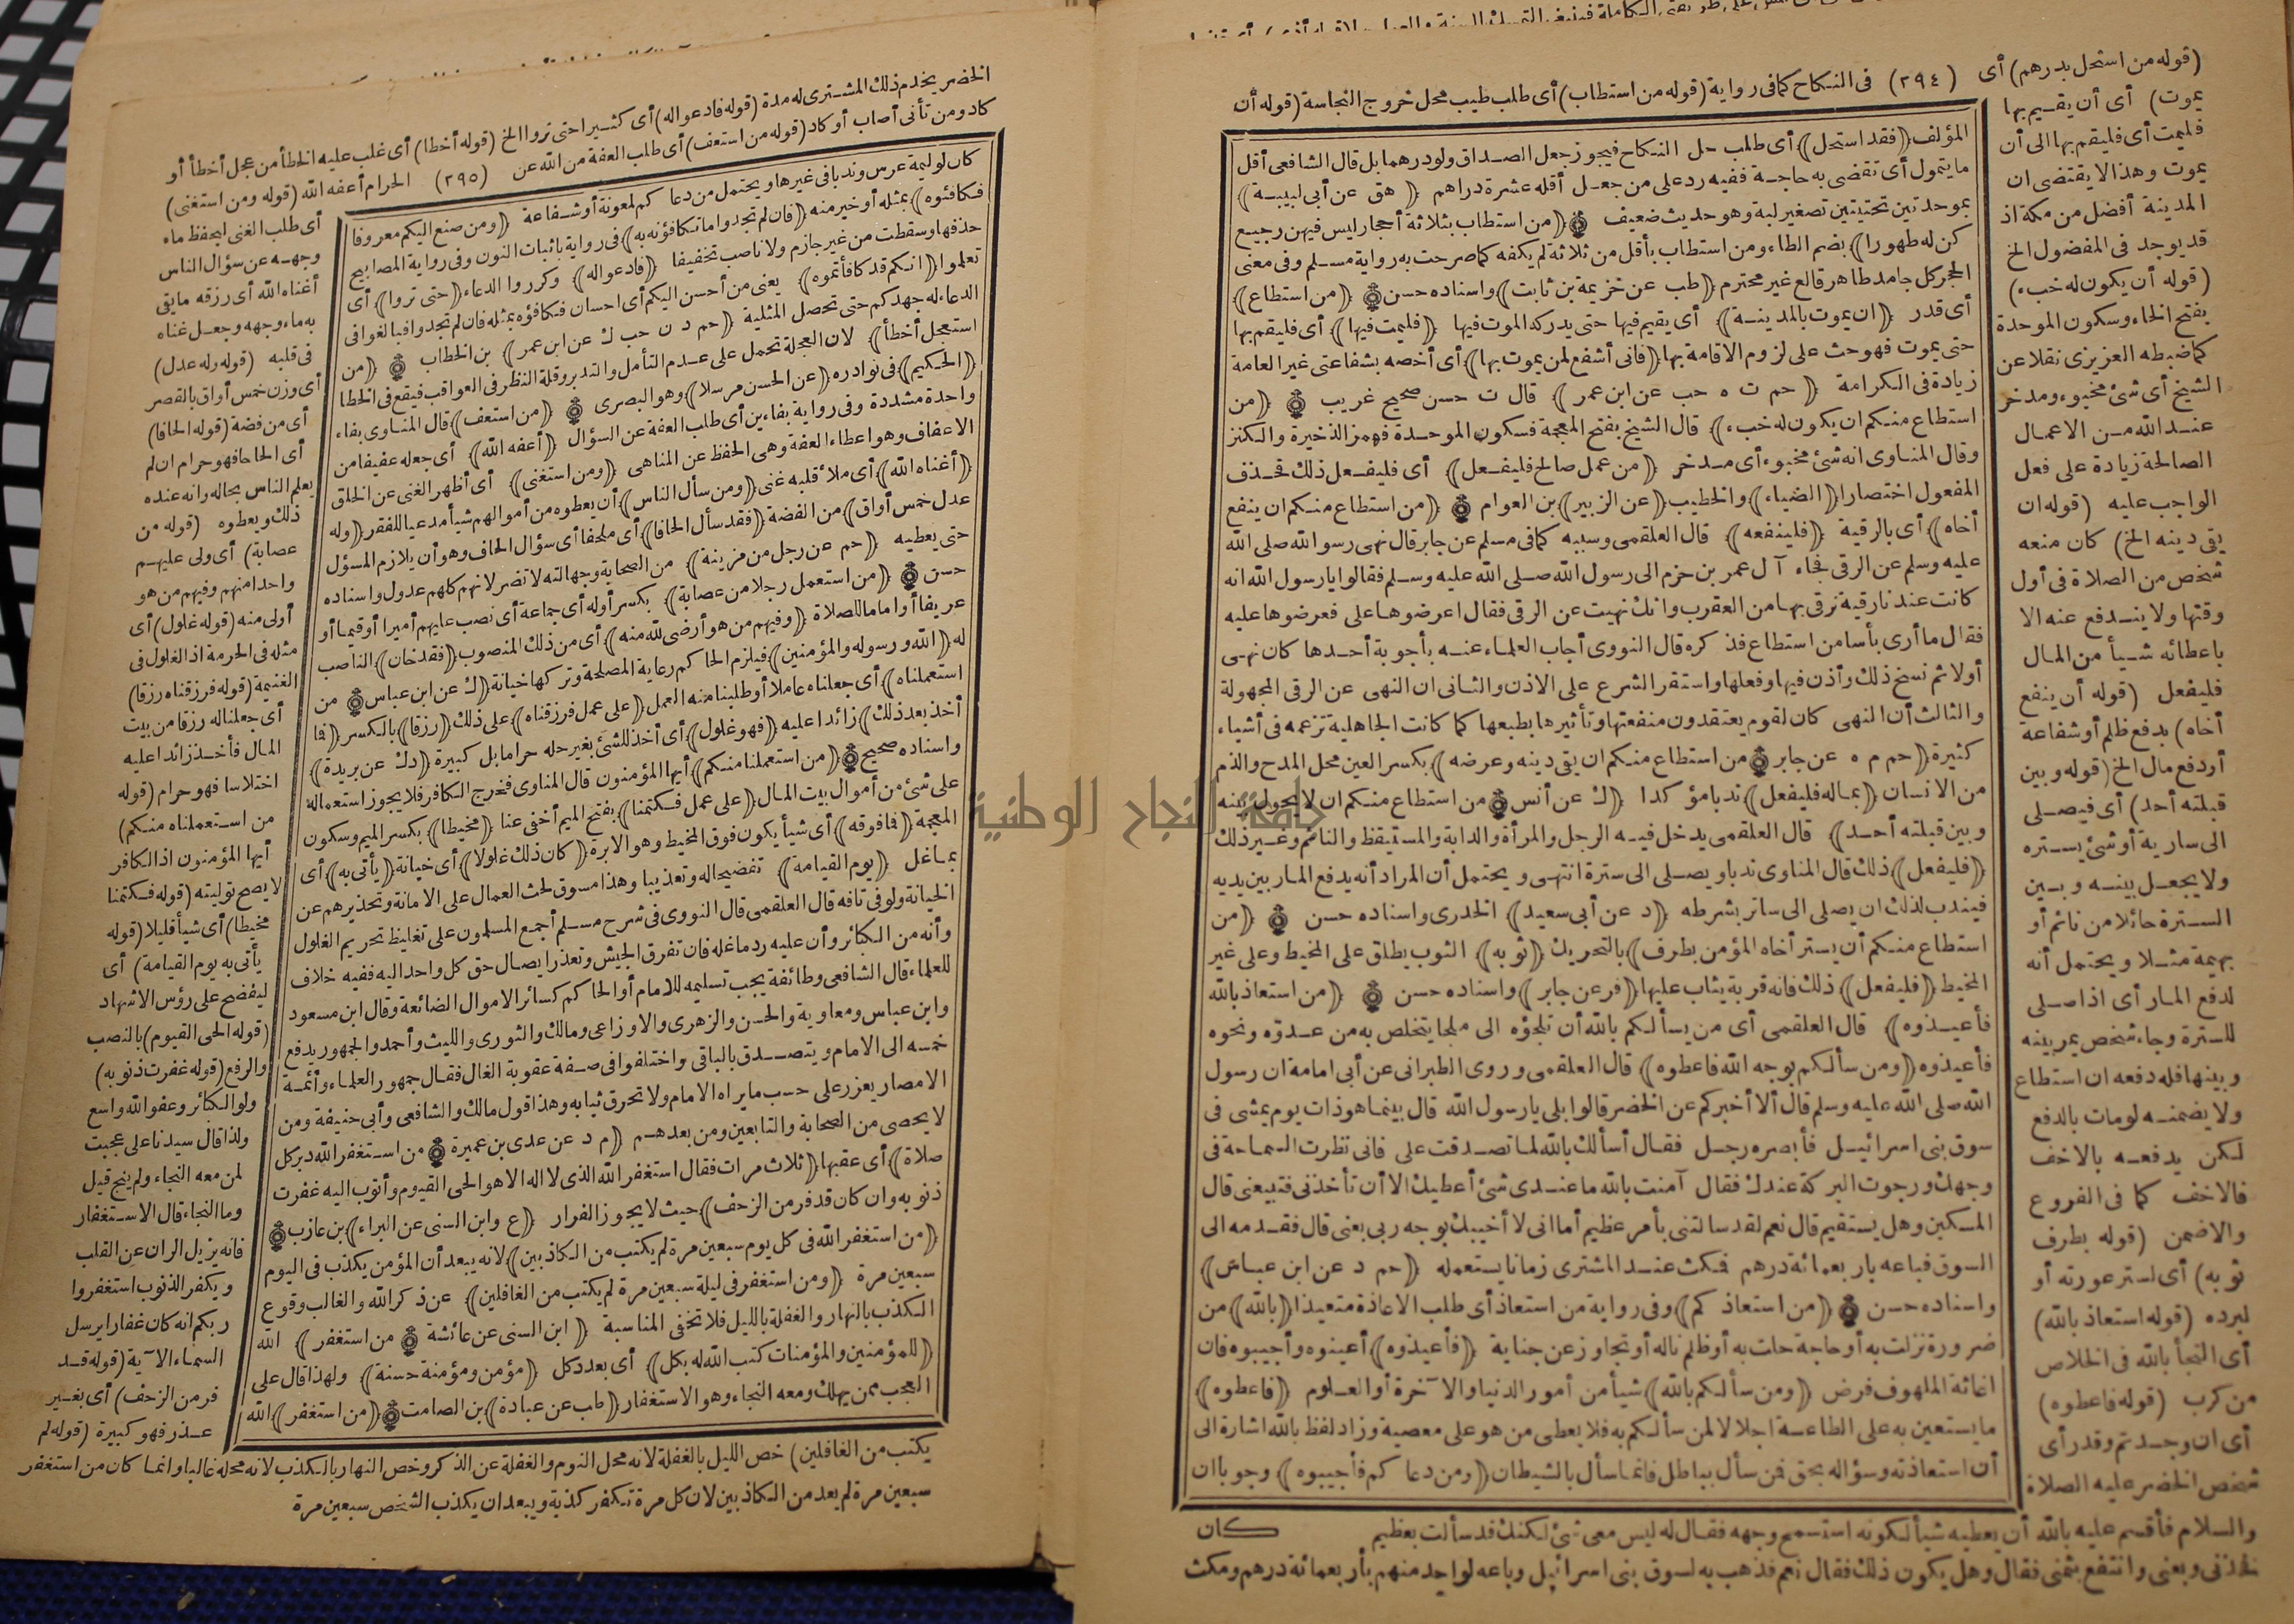 (قوله من استحل بدرهم) أى (٢٩٤) فى النكاح كما فى رواية (قوله من استطاب) أى طلب طيب محل خروج النجاسة (قوله أن
يموت) أى أن يقيم بها
فليمت أى فليقم بها الى أن
يموت وهذا لا يقتضى ان
المدينة أفضل من مكة اذ
قد يوجد فى المفضول الخ
(قوله أن يكون له خبء)
بفتح الخاء وسكون الموحدة
كما ضبطه العزيزى نقلا عن
الشيخ أى شئ مخبوء ومدخر
عند الله من الاعمال
الصالحة زيادة على فعل
الواجب عليه (قوله ان
يقى دينه الخ) كان منعه
شخص من الصلاة فى أول
وقتها ولا يندفع عنه الا
باعطائه شيأ من المال
فليفعل (قوله أن ينفع
أخاه) بدفع ظلم أو شفاعة
أو دفع مال الخ (قوله وبين
قبلته أحد) أى فيصلى
الى سارية أو شئ يستره
ولا يجعل بينه وبين
السترة حائلا من نائم أو
بهيمة مثلا ويحتمل أنه
لدفع المار أى اذا صلى
للسترة وجاء شخص يمر بينه
وبينها فله دفعه ان استطاع
ولا يضمنه لو مات بالدفع
لكن يدفعه بالاخف
فالاخف كما فى الفروع
والاضمن (قوله بطرف
ثوبه) أى استر عورته أو
لبرده (قوله استعاذ بالله)
أى التجأ بالله فى الخلاص
من كرب (قوله فاعطوه)
أى ان وجدتم وقدر أى
شخص الخضر عليه الصلاة
المؤلف ((فقد استحل)) أى طلب حل النكاح فيجوز جعل الصداق ولو درهما بل قال الشافعى أقل
ما يتمول أى تقضى به حاجة ففيه رد على من جعل أقله عشرة دراهم ((هق عن أبى لبيبة))
بموحدتين تحتيتين تصغير لبة وهو حديث ضعيف ((من استطاب بثلاثة أحجار ليس فيهن رجيع
كن له طهورا)) بضم الطاء ومن استطاب بأقل من ثلاثة لم يكفه كما صرحت به رواية مسلم وفى معنى
الحجر كل جامد طاهر قالع غير محترم ((طب عن خزيمة بن ثابت)) واسناده حسن ((من استطاع))
أى قدر ((ان يموت بالمدينة)) أى يقيم فيها حتى يدركه الموت فيها ((فليمت فيها)) أى فليقم بها
حتى يموت فهو حث على لزوم الاقامة بها ((فانى أشفع لمن يموت بها)) أى أخصه بشفاعتى غير العامة
زيادة فى الكرامة ((حم ت ه حب عن ابن عمر)) قال ت حسن صحيح غريب ((من
استطاع منكم ان يكون له خبء)) قال الشيخ بفتح المعجمة فسكون الموحدة فهمز الذخيرة والكنز
وقال المناوى انه شئ مخبوء أى مدخر ((من عمل صالح فليفعل)) أى فليفعل ذلك فحذف
المفعول اختصارا ((الضياء)) والخطيب ((عن الزبير)) بن العوام ((من استطاع منكم ان ينفع
أخاه)) أى بالرقية ((فلينفعه)) قال العلقمى وسببه كما فى مسلم عن جابر قال نهى رسول الله صلى الله
عليه وسلم عن الرقى فجاء آل عمر بن حزم الى رسول الله صلى الله عليه وسلم فقالوا يا رسول الله انه
كانت عندنا رقية نرقى بها من العقرب وانك نهيت عن الرقى فقال اعرضوها على فعرضوها عليه
فقال ما أرى بأسا من استطاع فذكره قال النووى أجاب العلماء عنه بأجوبة أحدها كان نهى
أولا ثم نسخ ذلك وأذن فيها وفعلها واستقر الشرع على الاذن والثانى ان النهى عن الرقى المجهولة
والثالث أن النهى كان لقوم يعتقدون منفعتها وتأثيرها بطبعها كما كانت الجاهلية تزعمه فى أشياء
كثيرة ((حم م ه عن جابر من استطاع منكم ان يقى دينه وعرضه)) بكسر العين محل المدح والذم
من الانسان ((بماله فليفعل)) ندبا مؤكدا ((ك عن أنس من استطاع منكم ان لا يحول بينه
وبين قبلته أحد)) قال العلقمى يدخل فيه الرجل والمرأة والدابة والمستيقظ والنائم وغير ذلك
((فليفعل)) ذلك قال المناوى ندبا ويصلى الى سترة انتهى ويحتمل أن المراد أنه يدفع المار بين يديه
فيندب لذلك ان يصلى الى ساتر بشرطه ((د عن أبى سعيد)) الخدرى واسناده حسن ((من
استطاع منكم أن يستر أخاه المؤمن بطرف)) بالتحريك ((ثوبه)) الثوب يطلق على المخيط وعلى غير
المخيط ((فليفعل)) ذلك فانه قربة يثاب عليها ((فر عن جابر)) واسناده حسن ((من استعاذ بالله
فأعيذوه)) قال العلقمى أى من يسألكم بالله أن تلجؤه الى ملجا يتخلص به من عدوه ونحوه
فأعيذوه ((ومن سألكم بوجه الله فاعطوه)) قال العلقمى وروى الطبرانى عن أبى امامة ان رسول
الله صلى الله عليه وسلم قال ألا أخبركم عن الخضر قالوا بلى يا رسول الله قال بينما هو ذات يوم يمشى فى
سوق بنى اسرائيل فأبصره رجل فقال أسألك بالله لما تصدقت على فانى نظرت السماحة فى
وجهك ورجوت البركة عندك فقال آمنت بالله ما عندى شئ أعطيك الا أن تأخذنى فتبيعنى قال
المسكين وهل يستقيم قال نعم لقد سالتنى بأمر عظيم أما انى لا أخيبك بوجه ربى بعنى قال فقدمه الى
السوق فباعه باربعمائة درهم فمكث عند المشترى زمانا يستعمله ((حم د عن ابن عباس))
واسناده حسن ((من استعاذكم)) وفى رواية من استعاذ أى طلب الاعاذة متعيذا ((بالله)) من
ضرورة نزلت به أو حاجة حلت به أو ظلم ناله أو تجاوز عن جناية ((فأعيذوه)) أعينوه وأجيبوه فان
اغاثة الملهوف فرض ((ومن سألكم بالله)) شيأ من أمور الدنيا والآخرة أو العلوم ((فاعطوه))
ما يستعين به على الطاعة اجلالا لمن سألكم به فلا يعطى من هو على معصية وزاد لفظ بالله اشارة الى
أن استعاذته وسؤاله بحق فمن سأل بباطل فانما سأل بالشيطان ((ومن دعاكم فأجيبوه)) وجوبا ان
كان
والسلام فأقسم عليه بالله أن يعطيه شيأ لكونه استسمح وجهه فقال له ليس معى شئ لكنك قد سألت بعظيم
فخذنى وبعنى وانتفع بثمنى فقال وهل يكون ذلك فقال نعم فذهب به لسوق بنى اسرائيل وباعه لواحد منهم بأربعمائة درهم ومكث
الخضر يخدم ذلك المشترى له مدة (قوله فادعوا له) أى كثيرا حتى تروا الخ (قوله أخطا) أى غلب عليه الخطأ من عجل أخطأ أو
كاد ومن تأنى أصاب أو كاد (قوله من استعف) أى طلب العفة من الله عن (٢٩٥) الحرام أعفه الله (قوله ومن استغنى)
أى طلب الغنى ليحفظ ماء
وجهه عن سؤال الناس
أغناه الله أى رزقه ما يقى
به ماء وجهه وجعل غناه
فى قلبه (قوله وله عدل)
أى وزن خمس أواق بالقصر
أى من فضة (قوله الحافا)
أى الحاحا فهو حرام ان لم
يعلم الناس بحاله وانه عنده
ذلك ويعطوه (قوله من
عصابة) أى ولى عليهم
واحدا منهم وفيهم من هو
أولى منه (قوله غلول) أى
مثله فى الحرمة اذ الغلول فى
الغنيمة (قوله فرزقناه رزقا)
أى جعلنا له رزقا من بيت
المال فأخذ زائدا عليه
اختلاسا فهو حرام (قوله
من استعملناه منكم)
أيها المؤمنون اذ الكافر
لا يصح توليته (قوله فكتمنا
مخيطا) أى شيأ قليلا (قوله
يأتى به يوم القيامة) أى
ليفضح على رؤس الاشهاد
(قوله الحى القيوم) بالنصب
والرفع (قوله غفرت ذنوبه)
ولو الكبائر وعفو الله واسع
ولذا قال سيدنا على عجبت
لمن معه النجاء ولم ينج قيل
وما النجاء قال الاستغفار
فانه يزيل الران عن القلب
ويكفر الذنوب استغفروا
ربكم انه كان غفارا يرسل
السماء الآية (قوله قد
فر من الزحف) أى بغير
عذر فهو كبيرة (قوله لم
كان لوليمة عرس وندبا فى غيرها ويحتمل من دعاكم لمعونة أو شفاعة ((ومن صنع اليكم معروفا
فكافئوه)) بمثله أو خير منه ((فان لم تجدوا ما تكافؤنه به)) فى رواية باثبات النون وفى رواية المصابيح
حذفها وسقطت من غير جازم ولا ناصب تخفيفا ((فادعوا له)) وكرروا الدعاء ((حتى تروا)) أى
تعلموا ((انكم قد كافأتموه)) يعنى من أحسن اليكم أى احسان فكافؤه بمثله فان لم تجدوا فبالغوا فى
الدعاء له جهدكم حتى تحصل المثلية ((حم د ن حب ك عن ابن عمر)) بن الخطاب ((من
استعجل أخطأ)) لان العجلة تحمل على عدم التأمل والتدبر وقلة النظر فى العواقب فيقع فى الخطا
((الحكيم)) فى نوادره ((عن الحسن مرسلا)) وهو البصرى ((من استعف)) قال المناوى بفاء
واحدة مشددة وفى رواية بفاءين أى طلب العفة عن السؤال ((أعفه الله)) أى جعله عفيفا من
الاعفاف وهو اعطاء العفة وهى الحفظ عن المناهى ((ومن استغنى)) أى أظهر الغنى عن الخلق
((أغناه الله)) أى ملأ قلبه غنى ((ومن سأل الناس)) أن يعطوه من أموالهم شيأ مدعيا للفقر ((وله
عدل خمس أواق)) من الفضة ((فقد سأل الحافا)) أى ملحفا أى سؤال الحاف وهو أن يلازم المسؤل
حتى يعطيه ((حم عن رجل من مزينة)) من الصحابة وجهالته لا تضر لانهم كلهم عدول واسناده
حسن ((من استعمل رجلا من عصابة)) بكسر أوله أى جماعة أى نصب عليهم أميرا أو قيما أو
عريفا أو اماما للصلاة ((وفيهم من هو أرضى لله منه)) أى من ذلك المنصوب ((فقد خان)) الناصب
له ((الله ورسوله والمؤمنين)) فيلزم الحاكم رعاية المصلحة وتركها خيانة ((ك عن ابن عباس من
استعملناه)) أى جعلناه عاملا أو طلبنا منه العمل ((على عمل فرزقناه)) على ذلك ((رزقا)) بالكسر ((فما
أخذ بعد ذلك)) زائدا عليه ((فهو غلول)) أى أخذ للشئ بغير حله حراما بل كبيرة ((دك عن بريدة))
واسناده صحيح ((من استعملنا منكم)) أيها المؤمنون قال المناوى فخرج الكافر فلا يجوز استعماله
على شئ من أموال بيت المال ((على عمل فكتمنا)) بفتح الميم أخفى عنا ((مخيطا)) بكسر الميم وسكون
المعجمة ((فما فوقه)) أى شيأ يكون فوق المخيط وهو الابرة ((كان ذلك غلولا)) أى خيانة ((يأتى به)) أى
بما غل ((يوم القيامة)) تفضيحا له وتعذيبا وهذا مسوق لحث العمال على الامانة وتحذيرهم عن
الخيانة ولو فى تافه قال العلقمى قال النووى فى شرح مسلم أجمع المسلمون على تغليظ تحريم الغلول
وأنه من الكبائر وأن عليه رد ما غله فان تفرق الجيش وتعذر ايصال حق كل واحد اليه ففيه خلاف
للعلماء قال الشافعى وطائفة يجب تسليمه للامام أو الحاكم كسائر الاموال الضائعة وقال ابن مسعود
وابن عباس ومعاوية والحسن والزهرى والاوزاعى ومالك والثورى والليث وأحمد والجمهور يدفع
خمسه الى الامام ويتصدق بالباقى واختلفوا فى صفة عقوبة الغال فقال جمهور العلماء وأئمة
الامصار يعزر على حسب ما يراه الامام ولا تحرق ثيابه وهذا قول مالك والشافعى وأبى حنيفة ومن
لا يحصى من الصحابة والتابعين ومن بعدهم ((م د عن عدى بن عميرة من استغفر الله دبر كل
صلاة)) أى عقبها ((ثلاث مرات فقال استغفر الله الذى لا اله الا هو الحى القيوم وأتوب اليه غفرت
ذنوبه وان كان قد فر من الزحف)) حيث لا يجوز الفرار ((ع وابن السنى عن البراء)) بن عازب
((من استغفر الله فى كل يوم سبعين مرة لم يكتب من الكاذبين)) لانه يبعد أن المؤمن يكذب فى اليوم
سبعين مرة ((ومن استغفر فى ليلة سبعين مرة لم يكتب من الغافلين)) عن ذكر الله والغالب وقوع
الكذب بالنهار والغفلة بالليل فلا تخفى المناسبة ((ابن السنى عن عائشة من استغفر)) الله
((للمؤمنين والمؤمنات كتب الله له بكل)) أى بعدد كل ((مؤمن ومؤمنة حسنة)) ولهذا قال على
العجب ممن يهلك ومعه النجاء وهو الاستغفار ((طب عن عبادة)) بن الصامت ((من استغفر)) الله
يكتب من الغافلين) خص الليل بالغفلة لانه محل النوم والغفلة عن الذكر وخص النهار بالكذب لانه محله غالبا وانما كان من استغفر
سبعين مرة لم يعد من الكاذبين لان كل مرة تكفر كذبة ويبعد ان يكذب الشخص سبعين مرة
جامعة النجاح الوطنية